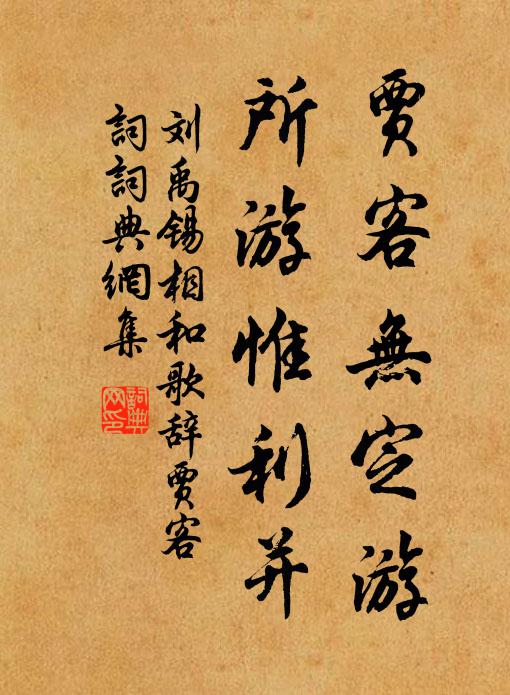 賈客無定游
所游惟利并
刘禹锡相和歌辞賈客
詞詞典網集
詞典
网印